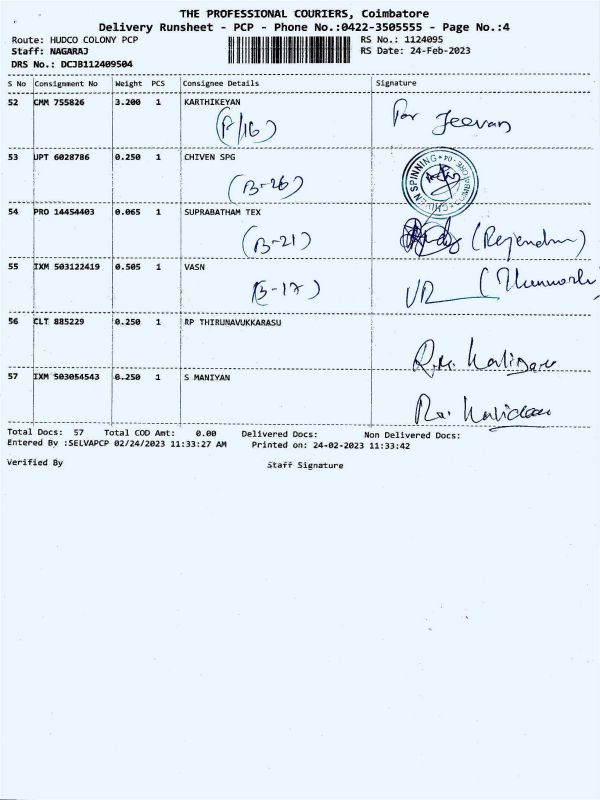 THE PROFESSIONAL COURIERS, Coimbatore
Delivery Runsheet - PCP - Phone No.:0422-3505555 - Page No.:4
Route: HUDCO COLONY PCP RS No.: 1124095
Staff: NAGARAJ RS Date: 24-Feb-2023
DRS No.: DCJB112409504
S No Consignment No Weight PCS Consignee Details Signature
52 CMM 755826 3.200 1 KARTHIKEYAN
(P/16) For Jeevan
53 JPT 6028786 0.250 1 CHIVEN SPG
(B-26) CHIVEN SPINNING
54 PRO 14454403 0.065 1 SUPRABATHAM TEX
(B-21) (Rajendran)
55 IXM 503122419 0.505 1 VASN
(B-17) VR
56 CLT 885229 0.250 1 RP THIRUNAVUKKARASU
57 IXM 503054543 0.250 1 S MANIYAN
Total Docs: 57 Total COD Amt: 0.00 Delivered Docs: Non Delivered Docs:
Entered By :SELVAPCP 02/24/2023 11:33:27 AM Printed on: 24-02-2023 11:33:42
Verified By Staff Signature